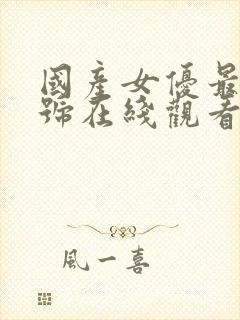 國產女優最
號在綫觀看
風一喜